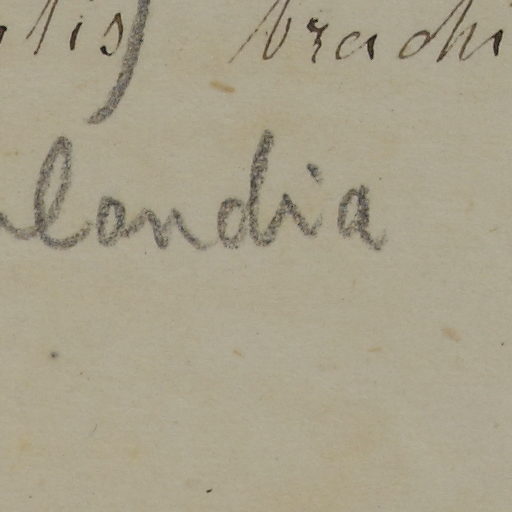 tis) brachi
landia